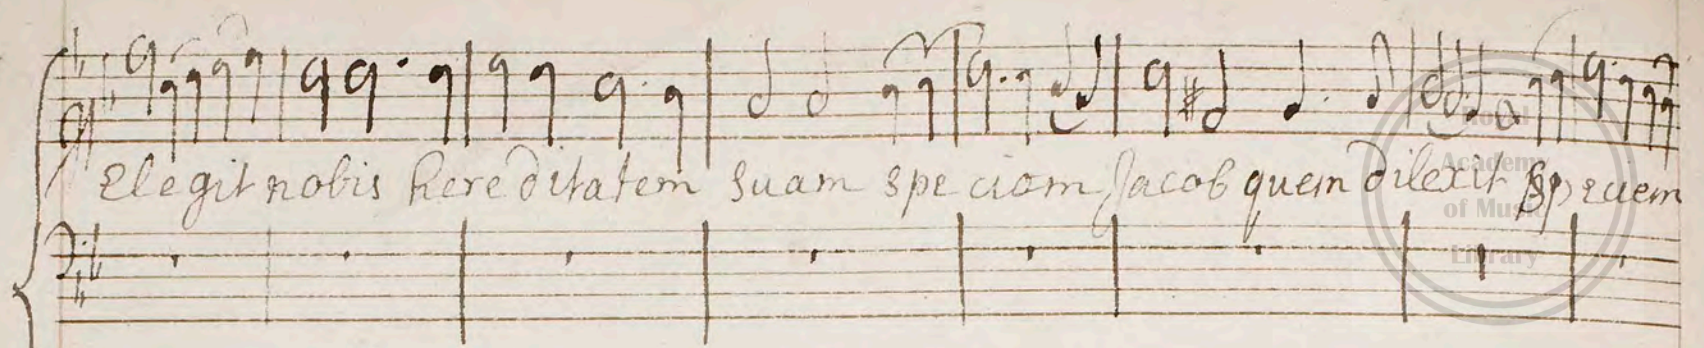 Elegit nobis hereditatem suam speciom Jacob quem dilexit
Royal
Academy
of Music
Library